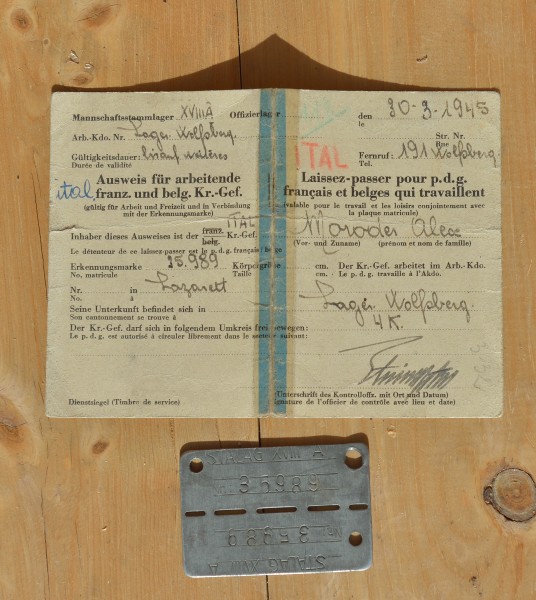 Mannschaftsstammlager XVIIIA Offizierlager den 30-3-1945
le
Arb.-Kdo. Nr. Lager Wolfsberg. Str. Nr.
Rue
Gültigkeitsdauer: bis auf weiteres Fernruf: 191 Wolfsberg.
Durée de validité Tel.
ITAL
Ausweis für arbeitende Laissez-passer pour p.d.g.
ital. franz. und belg. Kr.-Gef. français et belges qui travaillent
(gültig für Arbeit und Freizeit und in Verbindung (valable pour le travail et les loisirs conjointement avec
mit der Erkennungsmarke) la plaque matricule)
ITAL
Inhaber dieses Ausweises ist der franz. belg. Kr.-Gef. Moroder Alex
(Vor- und Zuname) (prénom et nom de famille)
Le détenteur de ce laissez-passer est le p.d.g. français/belge
Erkennungsmarke 35.989 Körpergröße cm. Der Kr.-Gef. arbeitet im Arb.-Kdo.
No. matricule Taille cm. Le p.d.g. travaille à l'Akdo.
Nr. in Lazarett
No. à
Lager Wolfsberg.
4K.
Seine Unterkunft befindet sich in
Son cantonnement se trouve à
Der Kr.-Gef. darf sich in folgendem Umkreis frei bewegen:
Le p.d.g. est autorisé à circuler librement dans le secteur suivant:
Dienstsiegel (Timbre de service) (Unterschrift des Kontrolloffz. mit Ort und Datum)
signature de l'officier de contrôle avec lieu et date)
STALAG XVIII A
35989
Nr. 35989
STALAG XVIII A